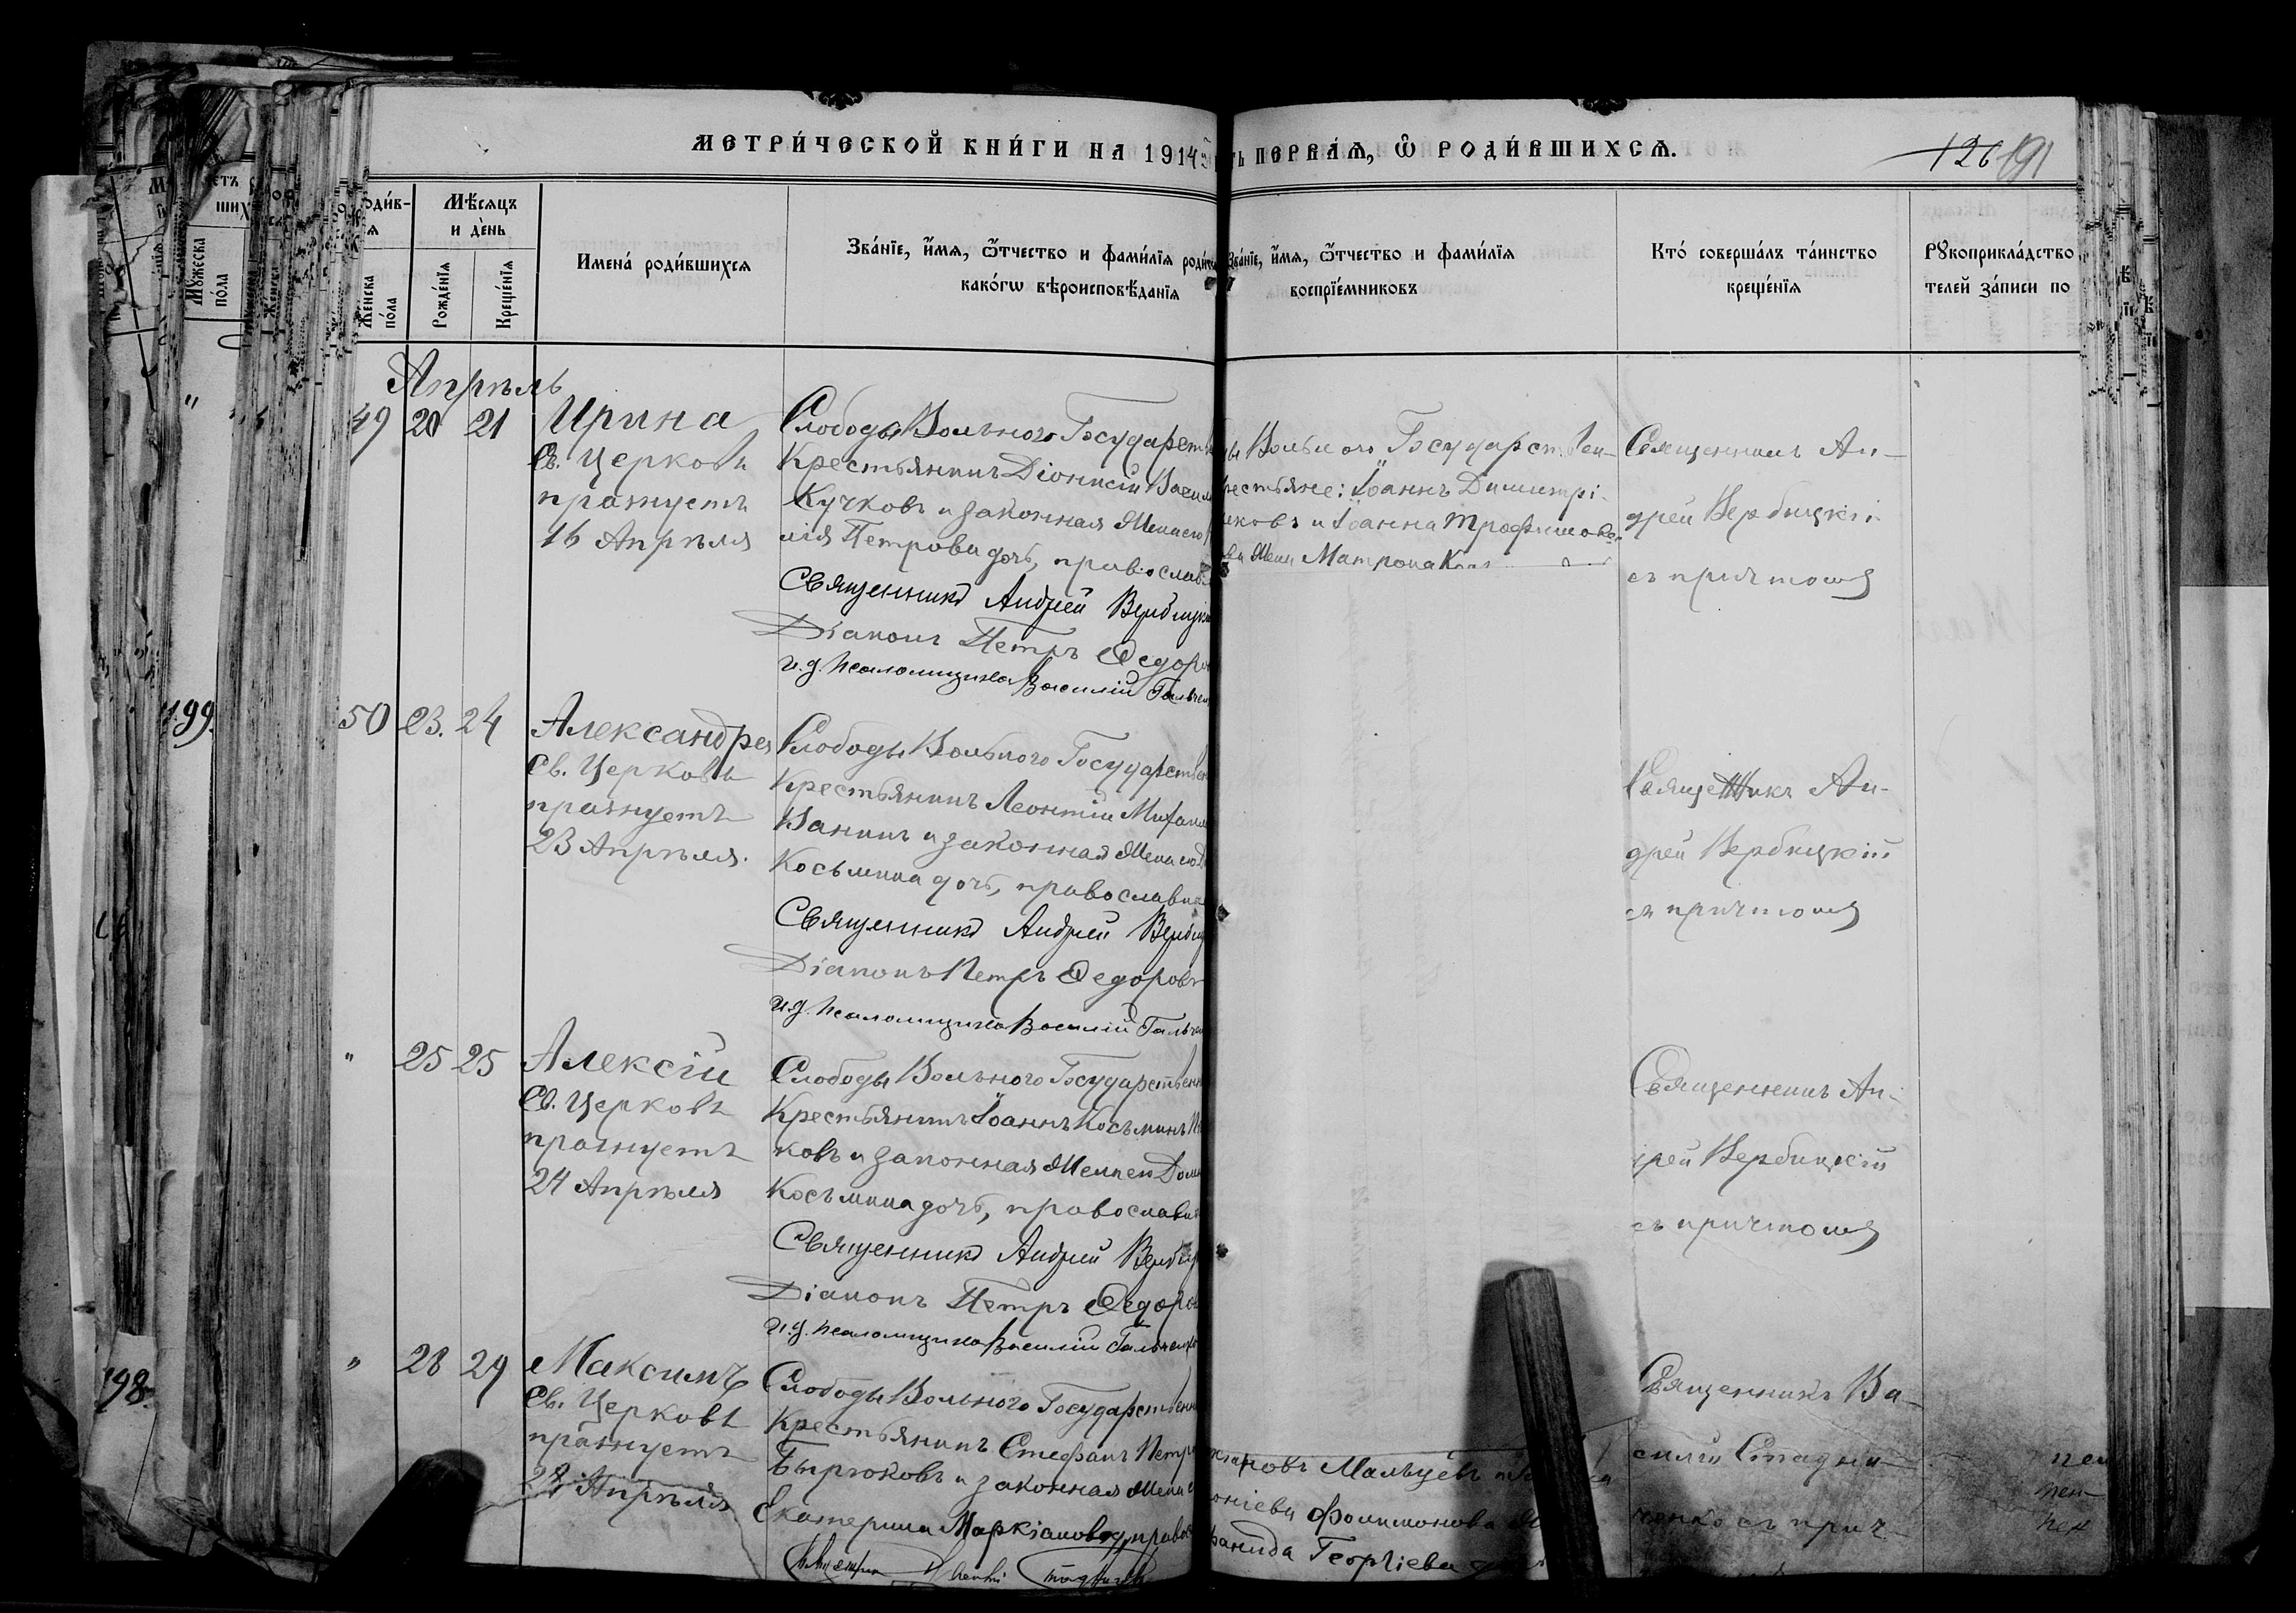 МЕТРИ́ЧЕСКОЙ КНИ́ГИ НА 1914
ПЕРВА́Ѧ, Ѽ РОДИ́ВШИХСѦ.
126 191
Мѣ́сяцъ
и де́нь
Же́нска
по́ла
Рожде́нїѧ
Креще́нїѧ
Имена́ роди́вшихсѧ
Зва́нїе, и́мѧ, ѻ҆́тчество и фами́лїѧ
како́гѡ вѣроисповѣ́данїѧ
Зва́нїе, и́мѧ, ѻ҆́тчество и фами́лїѧ
воспрїе́мниковъ
Кто́ соверша́лъ та́инство
креще́нїѧ
Рꙋкоприкла́дство
телей за́писи по
Мꙋ́жеска
по́ла
Апрѣль
49 20 21 Ирина
Св. Церковь
празнуетъ
16 Апрѣля
Слободы Вольного Государств
Крестьянинъ Діонисій Васил
Кучковъ и законная Жена его
лія Петрова дочь, православ
Священникъ Андрей Вербицкі
Діаконъ Петръ Ѳедоро
и.д. псаломщика Василій Гальчен
Вольного Государствен-
рестьяне: Іоаннъ Димитрі-
ковъ и Іоанна Трофимов
Жена Матрона
Священникъ Ан-
дрей Вербицкій
съ причтомъ
199.
50 23. 24 Александра
Св. Церковь
празнуетъ
23 Апрѣля.
Слободы Вольного Государствен
Крестьянинъ Леонтій Михаил
Ванинъ и законная Жена его
Косьмина дочь, православна
Священникъ Андрей Вербиц
Діаконъ Петръ Ѳедоровъ
и.д. псаломщика Василій Гальчен
Священникъ Ан-
дрей Вербицкій
съ причтомъ
" 25 25 Алексій
Св. Церковь
празнуетъ
24 Апрѣля
Слободы Вольного Государственн
Крестьянинъ Іоаннъ Косьминъ
ковъ и законная Жена его Домн
Косьмина дочь, православн
Священникъ Андрей Вербиц
Діаконъ Петръ Ѳедоро
и.д. псаломщика Василій Гальченко
Священникъ Ан-
дрей Вербицкій
съ причтомъ
198.
" 28 29 Максимъ
Св. Церковь
празнуетъ
28 Апрѣля
Слободы Вольного Государственн
Крестьянинъ Стефанъ Петр
Бирюковъ и законная Жена
Екатерина Маркіанова, правос
Священникъ Ва-
силій Стадни-
ченко съ прич-
ровъ Мальцевъ
оніева Филимонова
фанида Георгіева